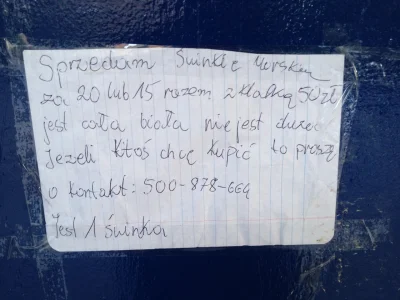 Sprzedam Świnkę Morską
za 20 lub 15 razem z klatką 50 zł
jest cała biała nie jest duża
Jeżeli ktoś chcę kupić to proszę
o kontakt: 500-878-664
Jest 1 świnka